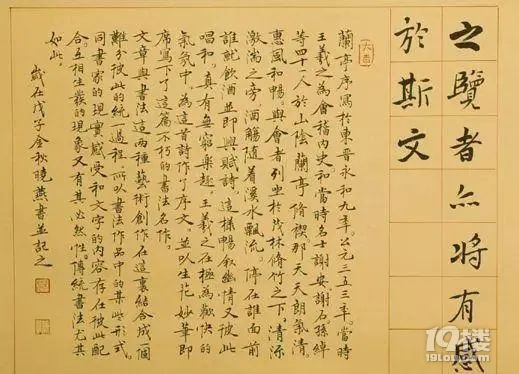 之覽者亦將有感
於斯文
蘭亭序寫於東晉永和九年。公元三五三年。當時
王羲之為會稽內史和當時名士謝安謝石孫綽
等四十一人於山陰蘭亭脩禊那天天朗氣清
惠風和暢。與會者列坐於茂林脩竹之下。清流
激湍之旁酒觴隨着溪水飄流。停在誰面前
誰就飲酒並即興賦詩。這樣暢叙幽情又彼此
唱和。真有無窮樂趣。王羲之在極為歡快的
氣氛中為這首詩作了序文。並以生花妙筆即
席寫下了這篇不朽的書法名作。
文章與書法這兩種藝術創作在這裏結合成一個
難分彼此的統一過程。所以書法作品中的某些形式。
同書家的現實感受和文字的內容存在彼此配
合。互相生發的現象又有其必然性。傳統書法尤其
如此。
歲在戊子金秋曉燕書並記之
19樓
19lou.com